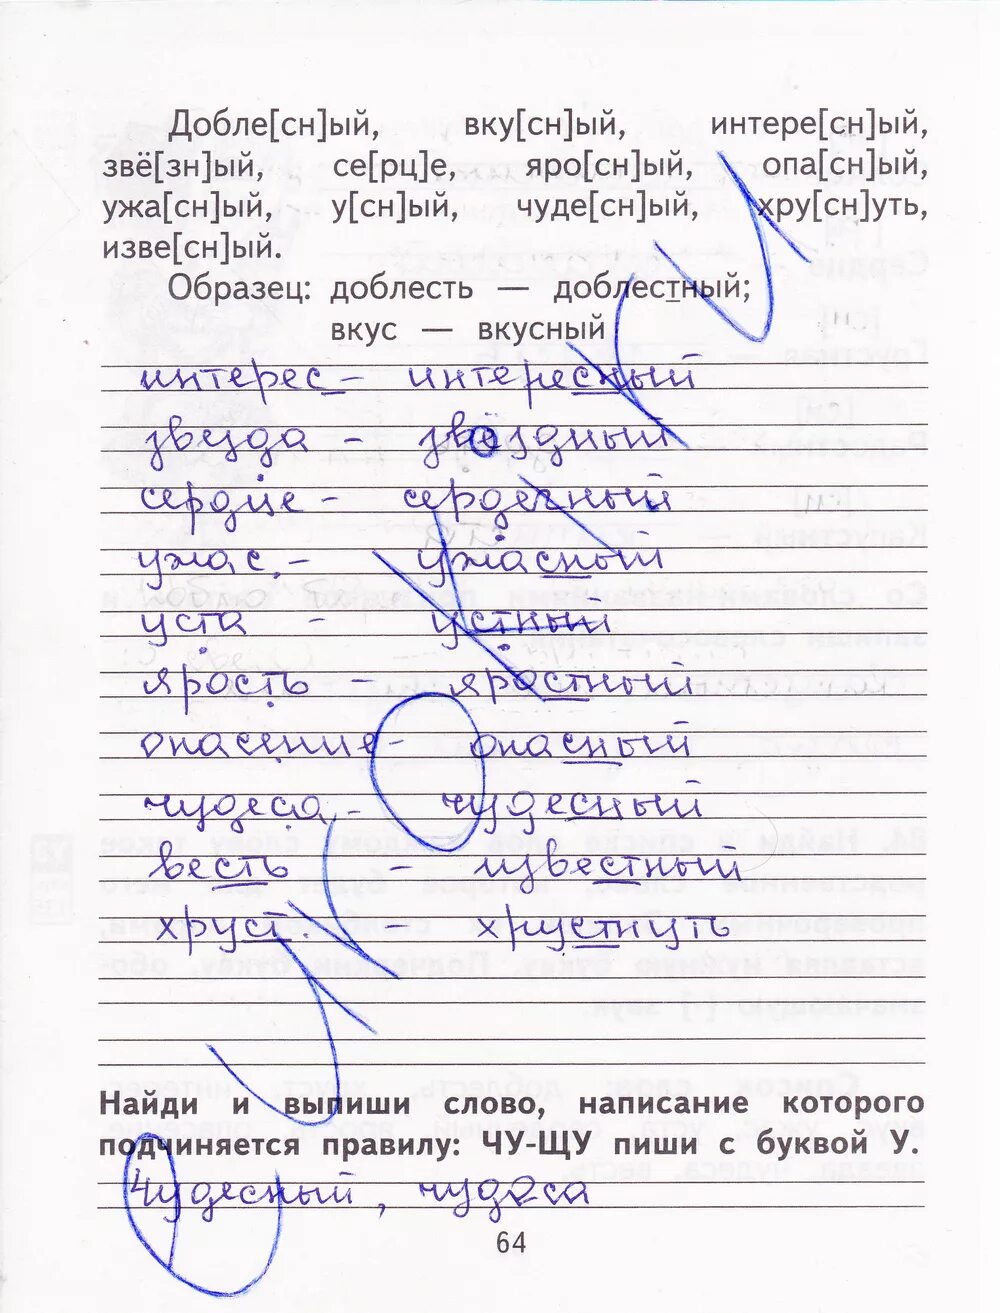 Добле[сн]ый, вку[сн]ый, интере[сн]ый,
звё[зн]ый, се[рц]е, яро[сн]ый, опа[сн]ый,
ужа[сн]ый, у[сн]ый, чуде[сн]ый, хру[сн]уть,
изве[сн]ый.
Образец: доблесть — доблестный;
вкус — вкусный
интерес – интересный
звезда – звёздный
сердце – сердечный
ужас – ужасный
уста – устный
ярость – яростный
опасение – опасный
чудеса – чудесный
весть – известный
хруст – хрустнуть
Найди и выпиши слово, написание которого
подчиняется правилу: ЧУ-ЩУ пиши с буквой У.
Чудесный, чудеса
64